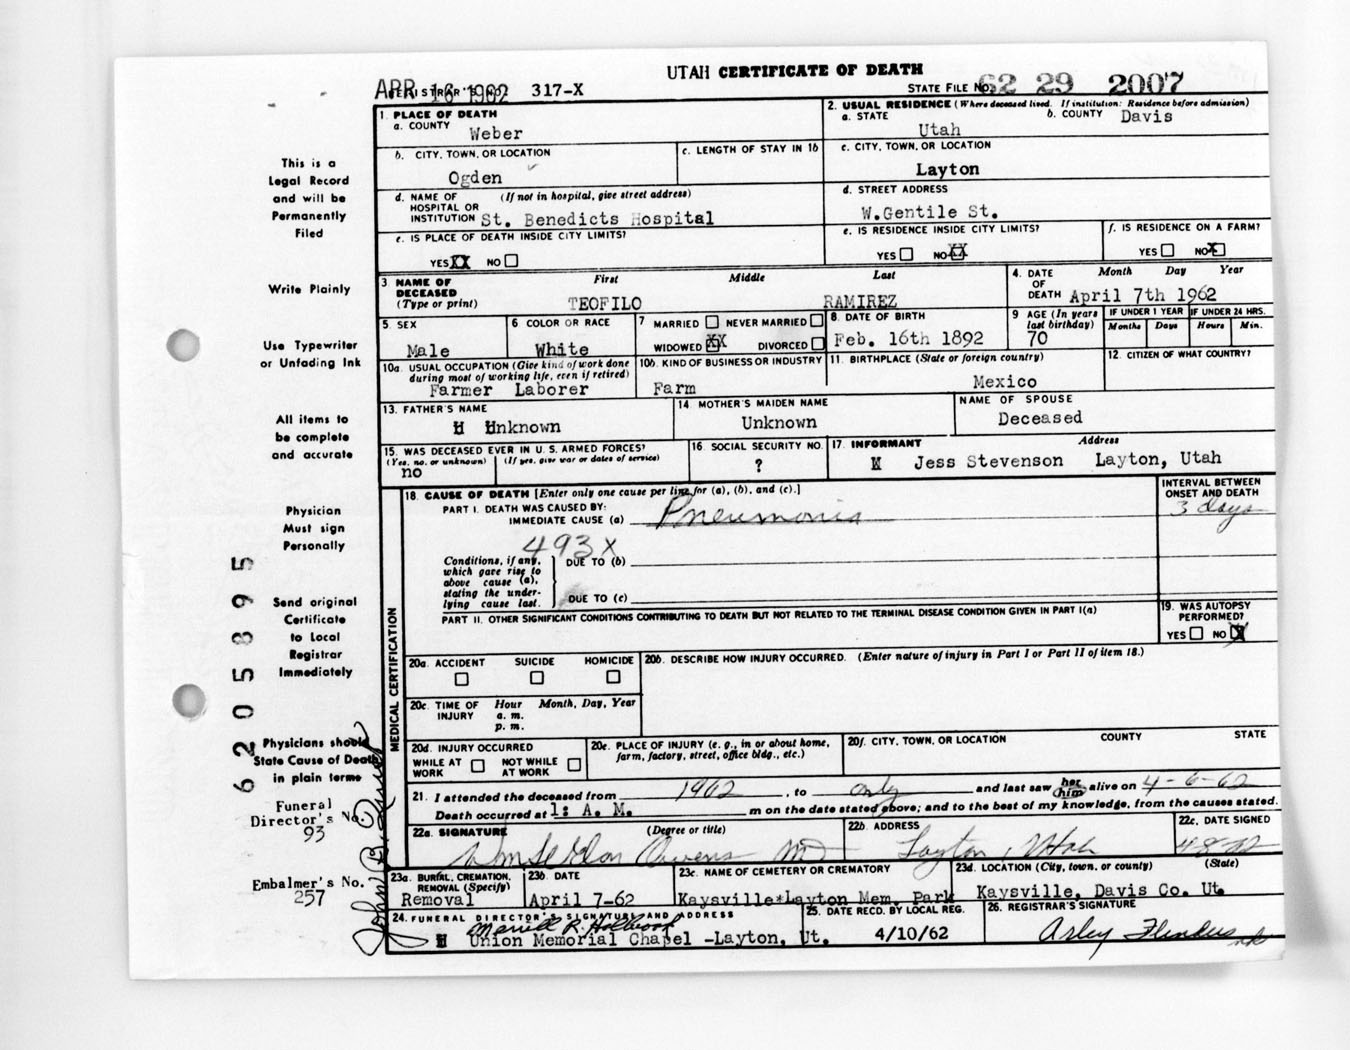 UTAH CERTIFICATE OF DEATH
APR 16 1962 REGISTRAR'S NO. 317-X STATE FILE No. 62 29 2007
1. PLACE OF DEATH
a. COUNTY Weber
2. USUAL RESIDENCE (Where deceased lived. If institution: Residence before admission)
a. STATE Utah b. COUNTY Davis
b. CITY, TOWN, OR LOCATION Ogden
c. LENGTH OF STAY IN 1b
c. CITY, TOWN, OR LOCATION Layton
d. NAME OF HOSPITAL OR INSTITUTION (If not in hospital, give street address) St. Benedicts Hospital
d. STREET ADDRESS W.Gentile St.
e. IS PLACE OF DEATH INSIDE CITY LIMITS?
YES XX NO
e. IS RESIDENCE INSIDE CITY LIMITS?
YES NO XX
f. IS RESIDENCE ON A FARM?
YES NO X
3 NAME OF DECEASED (Type or print) First Middle Last
TEOFILO RAMIREZ
4. DATE OF DEATH Month Day Year
April 7th 1962
5. SEX Male
6 COLOR OR RACE White
7 MARRIED NEVER MARRIED
WIDOWED XX DIVORCED
8. DATE OF BIRTH Feb. 16th 1892
9 AGE (In years last birthday) 70
IF UNDER 1 YEAR Months Days
IF UNDER 24 HRS. Hours Min.
10a. USUAL OCCUPATION (Give kind of work done during most of working life, even if retired)
Farmer Laborer
10b. KIND OF BUSINESS OR INDUSTRY Farm
11. BIRTHPLACE (State or foreign country) Mexico
12. CITIZEN OF WHAT COUNTRY?
13. FATHER'S NAME Unknown
14 MOTHER'S MAIDEN NAME Unknown
NAME OF SPOUSE Deceased
15. WAS DECEASED EVER IN U. S. ARMED FORCES?
(Yes, no, or unknown) (If yes, give war or dates of service)
no
16. SOCIAL SECURITY NO. ?
17. INFORMANT Address
Jess Stevenson Layton, Utah
MEDICAL CERTIFICATION
18. CAUSE OF DEATH [Enter only one cause per line for (a), (b), and (c).]
INTERVAL BETWEEN ONSET AND DEATH
PART I. DEATH WAS CAUSED BY:
IMMEDIATE CAUSE (a) Pneumonia 3 days
493X
Conditions, if any, which gave rise to above cause (a), stating the underlying cause last.
DUE TO (b)
DUE TO (c)
PART II. OTHER SIGNIFICANT CONDITIONS CONTRIBUTING TO DEATH BUT NOT RELATED TO THE TERMINAL DISEASE CONDITION GIVEN IN PART I(a)
19. WAS AUTOPSY PERFORMED?
YES NO X
20a. ACCIDENT SUICIDE HOMICIDE
20b. DESCRIBE HOW INJURY OCCURRED. (Enter nature of injury in Part I or Part II of item 18.)
20c. TIME OF INJURY Hour Month, Day, Year
a. m.
p. m.
20d. INJURY OCCURRED
WHILE AT WORK NOT WHILE AT WORK
20e. PLACE OF INJURY (e. g., in or about home, farm, factory, street, office bldg., etc.)
20f. CITY, TOWN, OR LOCATION COUNTY STATE
21. I attended the deceased from 1962, to only and last saw her him alive on 4-6-62
Death occurred at 1: A. M. m on the date stated above; and to the best of my knowledge, from the causes stated.
22a. SIGNATURE (Degree or title)
Owens MD
22b. ADDRESS Layton, Utah
22c. DATE SIGNED
23a. BURIAL, CREMATION, REMOVAL (Specify) Removal
23b. DATE April 7-62
23c. NAME OF CEMETERY OR CREMATORY Kaysville*Layton Mem. Park
23d. LOCATION (City, town, or county) (State)
Kaysville, Davis Co. Ut.
24. FUNERAL DIRECTOR'S SIGNATURE AND ADDRESS
Merrill R. Holbrook
Union Memorial Chapel -Layton, Ut.
25. DATE RECD. BY LOCAL REG. 4/10/62
26. REGISTRAR'S SIGNATURE
This is a
Legal Record
and will be
Permanently
Filed
Write Plainly
Use Typewriter
or Unfading Ink
All items to
be complete
and accurate
Physician
Must sign
Personally
Send original
Certificate
to Local
Registrar
Immediately
Physicians should
State Cause of Death
in plain terms
Funeral
Director's No.
93
Embalmer's No.
257
6205895